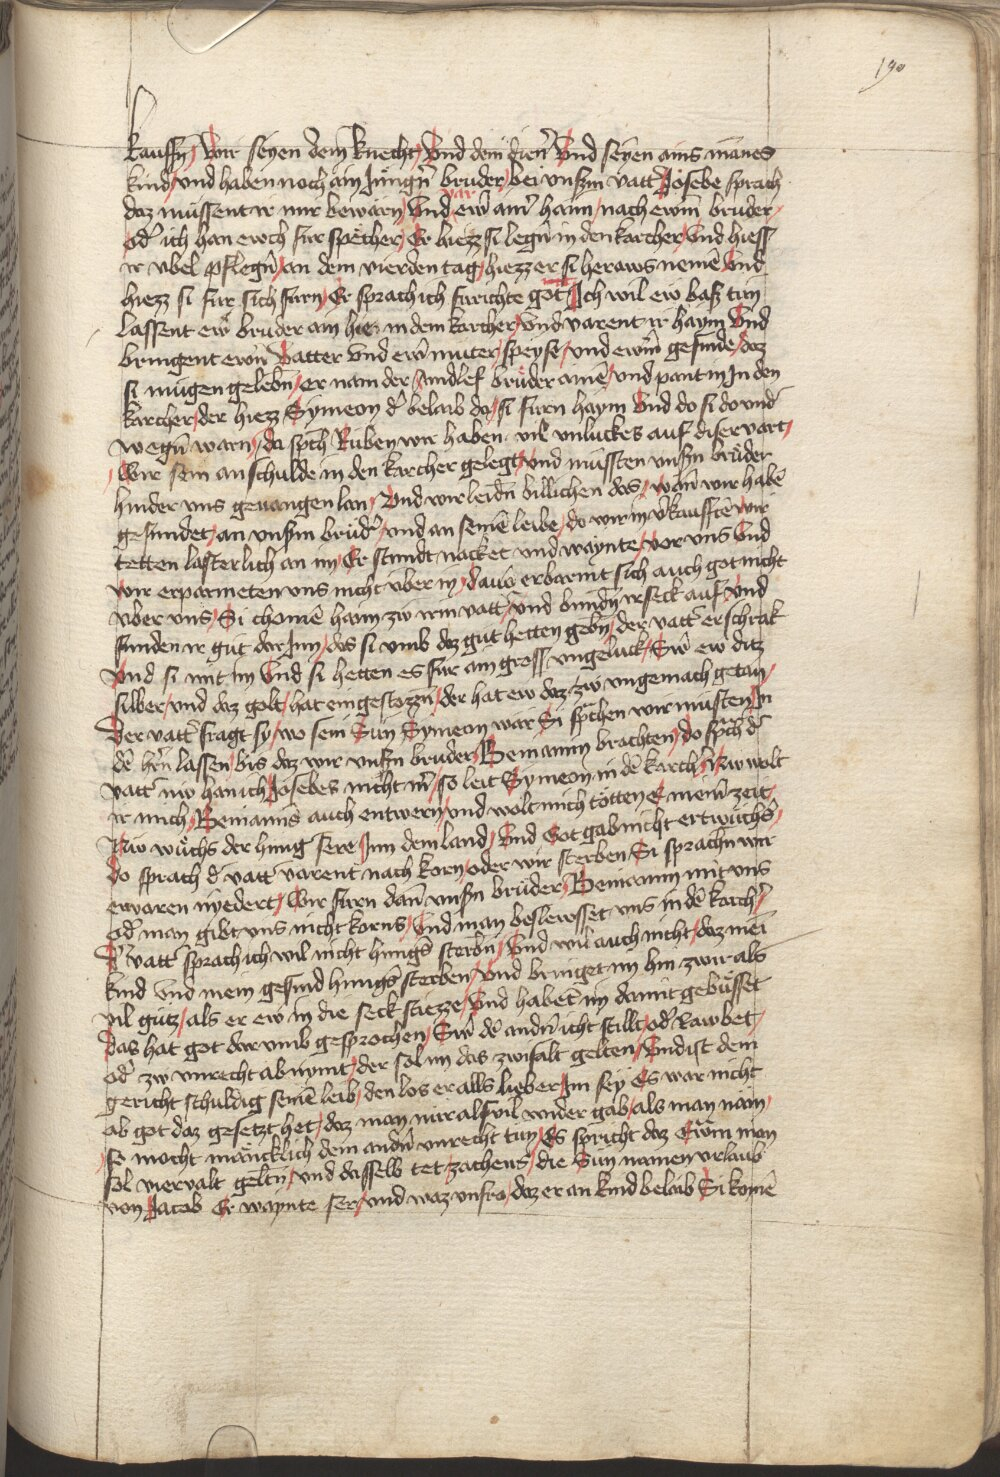 190
kauffn̄ / Wir seyen dein knecht / Vnd dein dien̄ Vnd seyen ains manes
kind / vnd haben noch ain Jungn̄ bruder / bei vnsm̄ vatt̄ Josebe sprach
daz mussent ir mir bewarn / Vnd var ew̄ ainr haim / nach ewrm bruder /
od̄ ich han ewch fur specher / Er hiezz si legn̄ in den karcher / Vnd hiess
ir vbel pflegn̄ / an dem vierden tag / hiezz er si heraws nemē Vnd
hiezz si fur sich furn / Er sprach ich furichte got / Ich wil ew baz tun
lassent ewr bruder ain hie in dem karcher / Vnd varent ir haym Vnd
bringent ewrn Vatter Vnd ewr muter / speyse / vnd ewrm gesinde / daz
si mugen gelebn̄ / er nam der aindlef bruder ainē / vnd pant in Jn den
karcher / der hiezz Symeon d̄ belaib da / si furn haym Vnd do si do vnd̄
wegn̄ warn / da spch Ruben wir haben vil vnluckes auf diser vart /
Wir sein an schulde in den karcher gelegt / vnd mussten vnsn̄ bruder
hinder vns geuangen lan / Vnd wir leidn̄ billichen das / wan̄ wir habē
gesundet / an vnsm̄ brud̄ / vnd an seinē leibe / do wir in v̄kaufften wir
tetten lasterlich an im / Er stundt nacket vnd waynte / vor vns Vnd
wir erparmeten vns nicht vber in / dauō erbarmt sich auch got nicht
vber vns / Si chomē haim zw irm vatt̄ / vnd bundn̄ ir seck auf / vnd
funden ir gut dar Inn / das si vmb daz gut hetten gebn̄ / der vatt̄ erschrak
vnd si mit im Vnd si hetten es fur ain gross vngeluck / Sw̄ ew ditz
silber / vnd daz golt / hat ein gestozzn̄ / der hat ew daz zw vngemach getan /
Der vatt̄ fragt sy / wo sein Sun Symeon war Si sp̄chen wir musten Jn
dē hrn̄ lassen / bis daz wir vnsn̄ bruder / Beniamin brachten / do sp̄ch d̄
vatt̄ nw han ich Josebes nicht mr̄ / so leit Symeon in dē karch̄ / Nw wolt
ir mich / Beniamis auch entwern / vnd wolt mich totten E meinr̄ zeit /
Nw wuchs der hunḡ sere Jnn dem land / Vnd Got gab nicht ertwuchs /
do sprach d̄ vatt̄ varent nach korn / oder wir sterben Si sprachn̄ wir
ervaren nyedert / Wir furn dan̄ vnsn̄ bruder / Beniamin mit vns
od̄ man gibt vns nicht korns / Vnd man beslewsset vns in dē karch̄ /
D̄ vatt̄ sprach ich wil nicht hungs̄ sterbn̄ / Vnd wil auch nicht / daz mei
kind Vnd mein gesind hungs̄ sterben / Vnd bringet im hin zwir als
vil gutz / als er ew in die seck stiezze / Vnd habet im damit gebusset
Das hat got dar vmb gesprochen / Sw̄ dē andn̄ icht stillt / od̄ Rawbet /
od̄ zw vnrecht ab nymt / der sol im das zwifalt gelten / Vnd ist dem
gericht schuldig seinē leib / den los er alls lieber im sey Es war nicht
ab got daz gesetzt het / daz man nur als vil wider gab / als man nam /
so mocht mancklich dem andn̄ vnrecht tun / Es spricht daz Ewm̄ man
sol viervalt geltn̄ / vnd dasselb tet / zacheus / die Sun namen vrlaub
von Jacob Er waynte ser / vnd waz vnfro / daz er an kind belaib Si komē